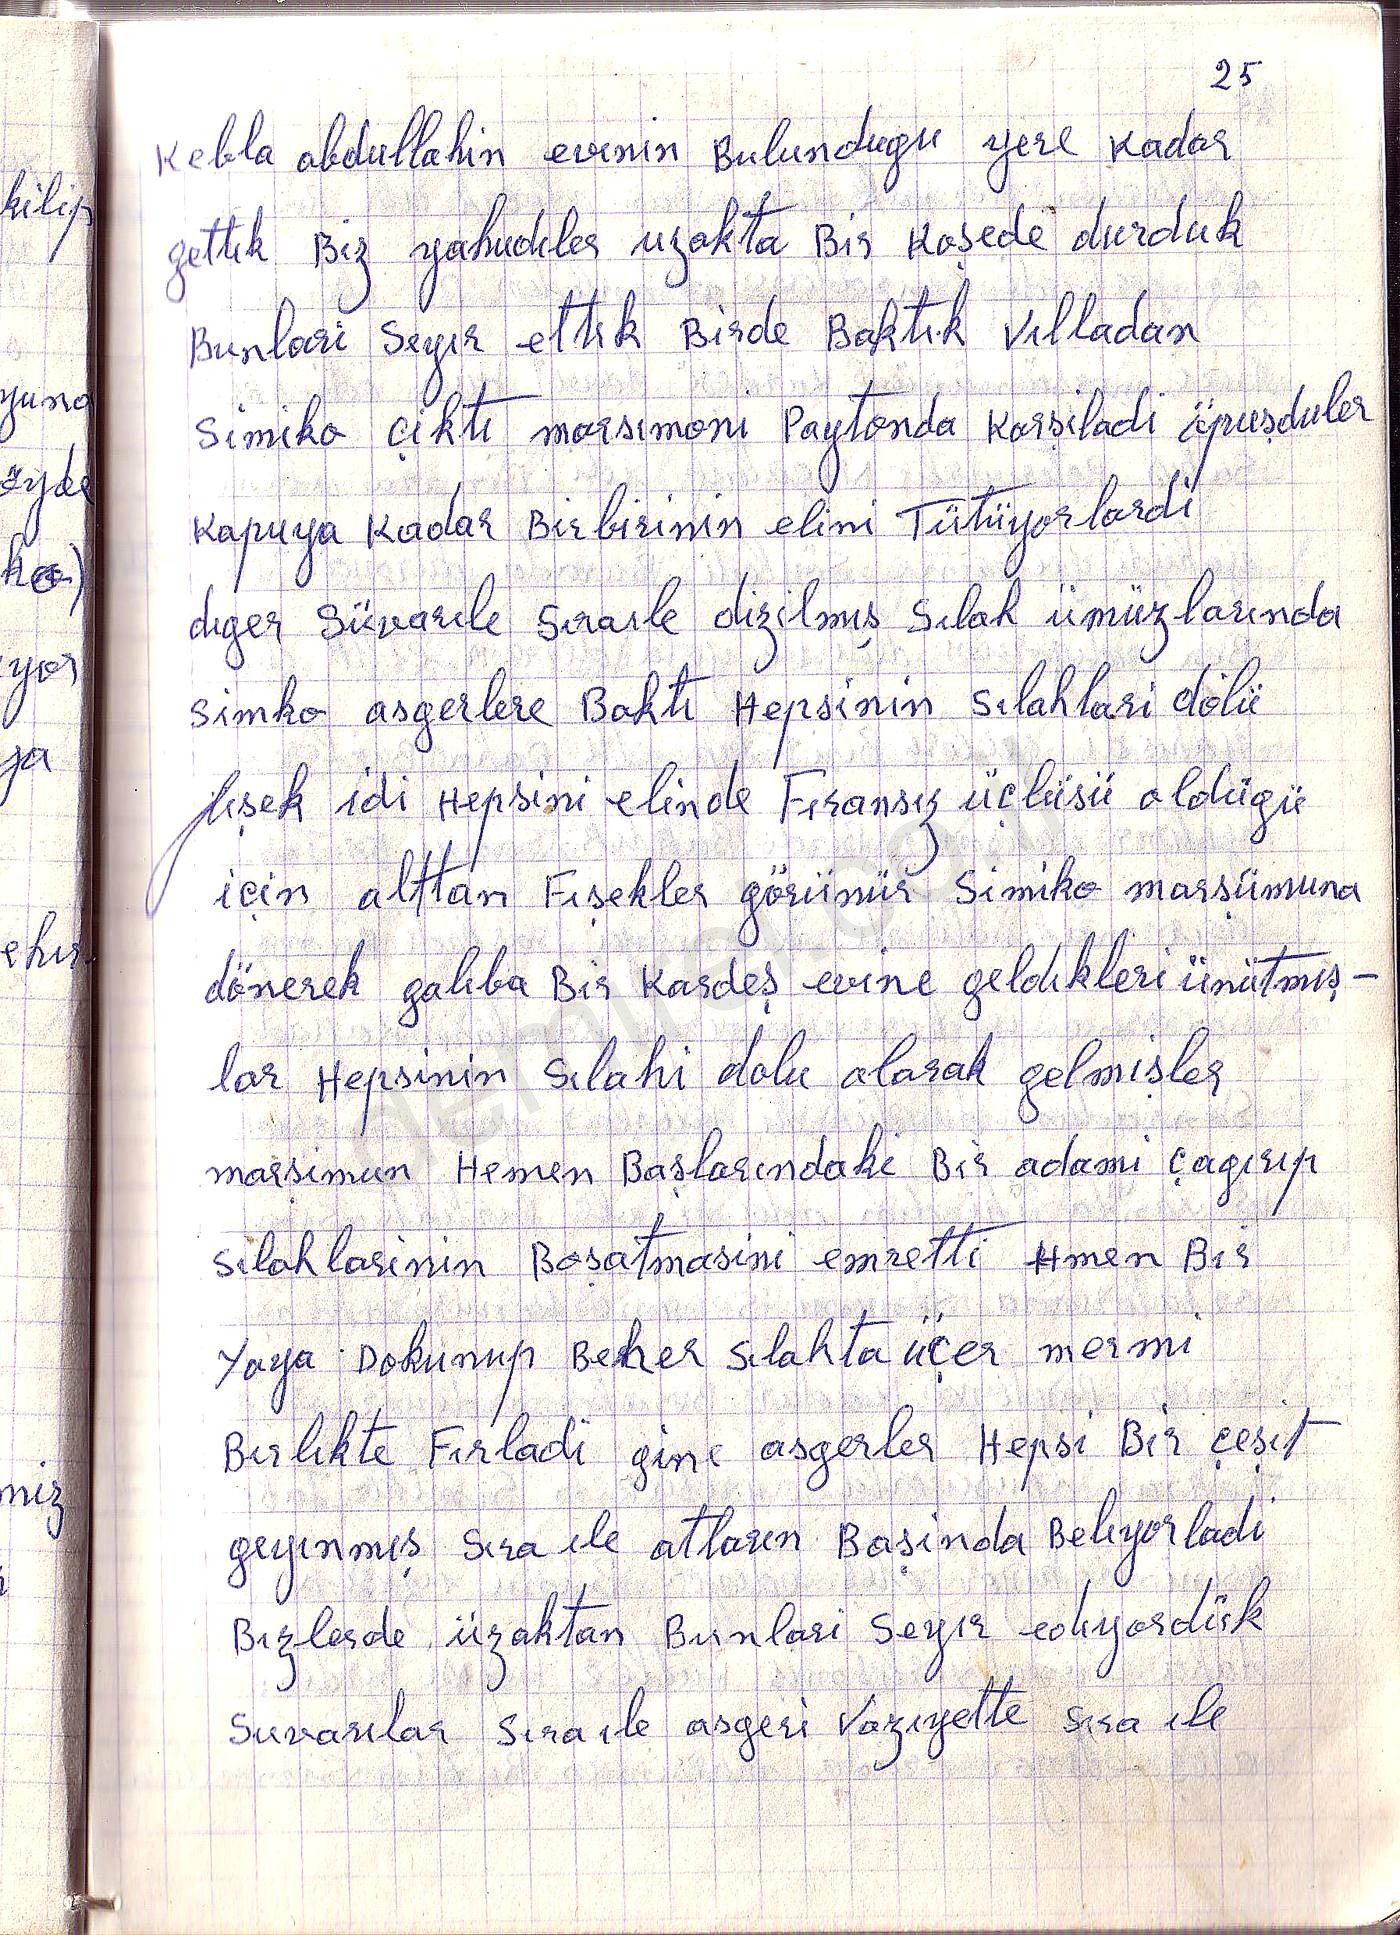 25
Kebla abdullahin evinin Bulundugu yere Kadar
gettık Biz yahudıler uzakta Bir Koşede durduk
Bunlari Seyır ettık Birde Baktık Vılladan
Simiko çiktı marsımoni Paytonda Karşiladi öpuşduler
Kapuya Kadar Birbirinin elini Tütüyorlardi
dıger Süvarıle Sıraıle dizilmış Sılah ümüzlarında
Simko asgerlere Baktı Hepsinin Sılahlari dölü
fışek idi Hepsini elinde Fıransız üçlüsü oldügü
için alttan Fışekler görünür Simiko marşümuna
dönerek galıba Bir Kardeş evine geldıkleri ünütmış-
lar Hepsinin Sılahi dolu olarak gelmişler
marşimun Hemen Başlarındaki Bir adami çagırıp
Sılahlarinin Boşatmasini emretti Hmen Bır
Yaya Dokunup Beher Sılahta üçer mermi
Bırlıkte Fırladi gine asgerler Hepsi Bir çeşit
geyınmış Sıra ıle atların Başinda Beklıyorladi
Bızlerde üzaktan Bunlari Seyır edıyordük
Suvarılar Sıra ıle asgeri Vazıyette Sıra ıle
kilip
yuna
öyde
ko)
yor
ya
ehır
mız
demirel.co.il